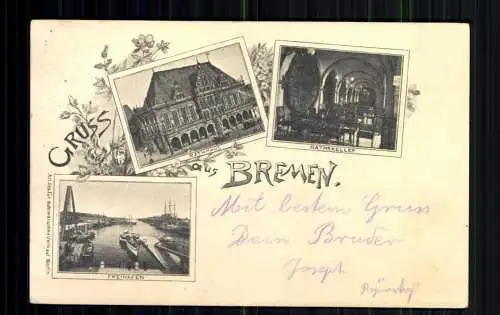 GRUSS
aus BREMEN.
RATHHAUS
RATHSKELLER
FREIHAFEN
Mit bestem Gruss
Dein Bruder
Joseph